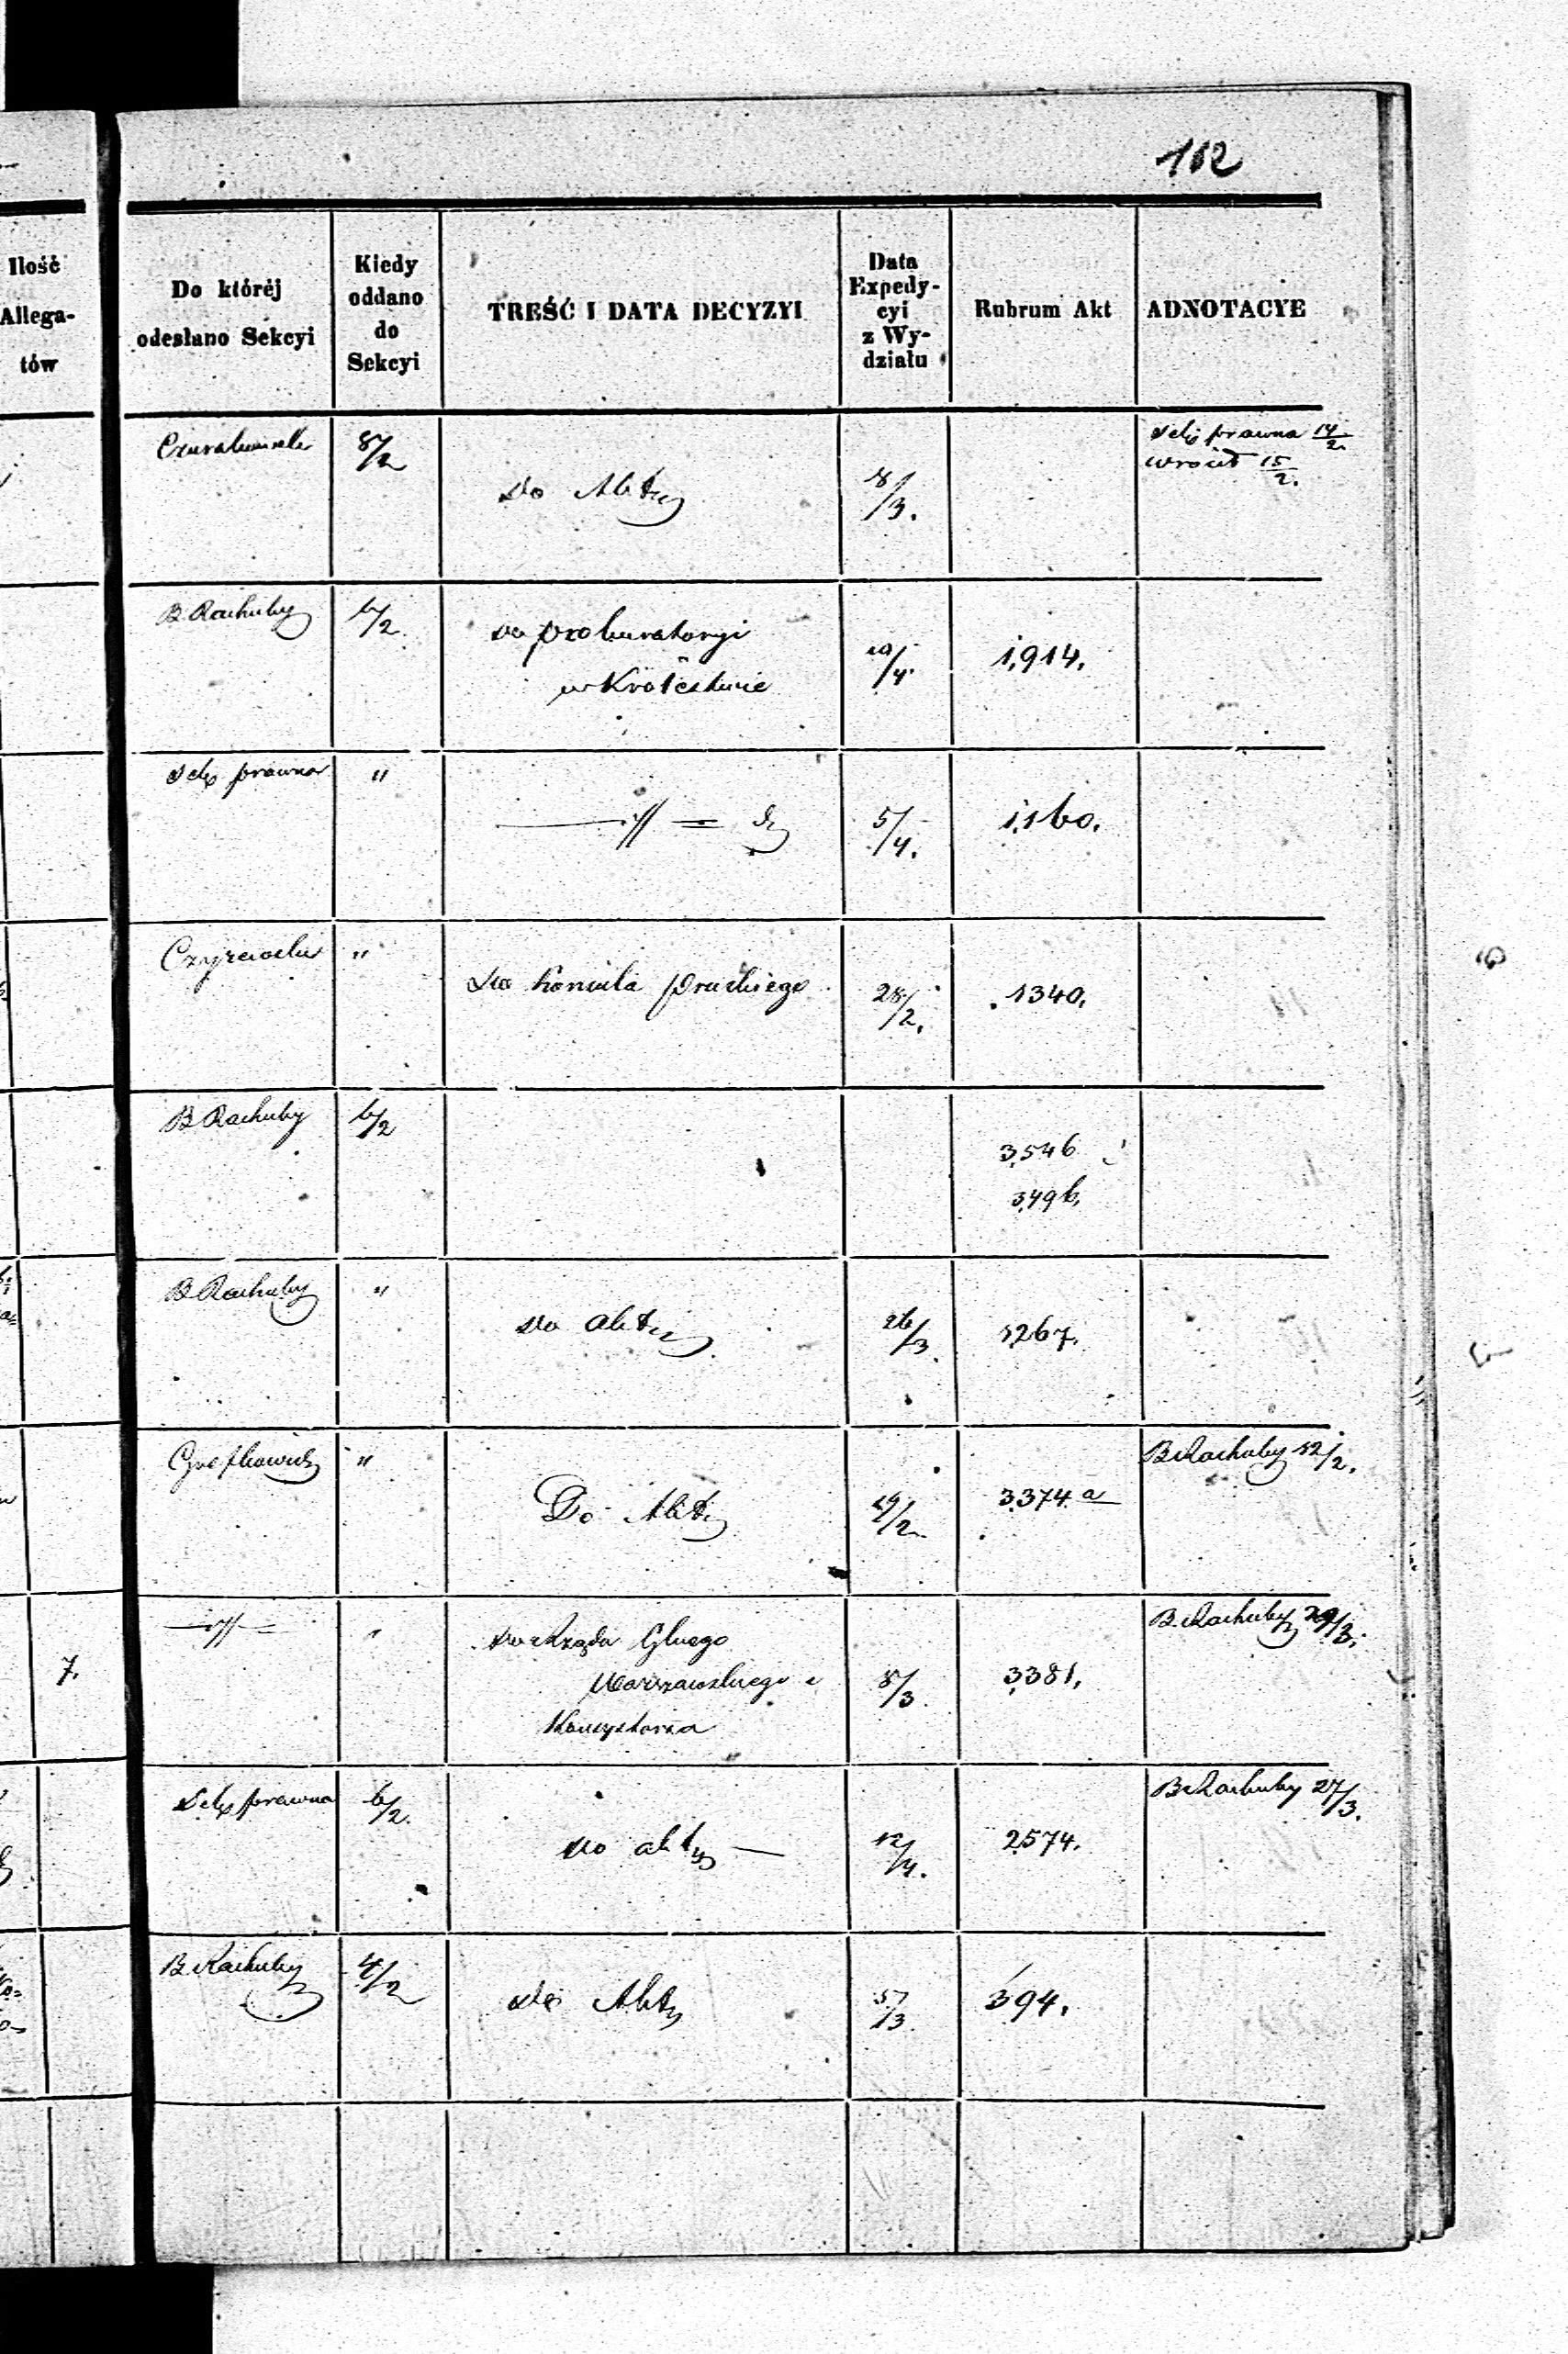 112
Ilość Allega- tów
Do któréj odesłano Sekcyi
Kiedy oddano do Sekcyi
TREŚĆ I DATA DECYZYI
Data Expedy- cyi z Wy- działu
Rubrum Akt
ADNOTACYE
8/2 Do Akty 18/3. Sekc prawna 14/2
wrócił 15/2.
B. Rachuby 6/2. do prokuratoryi
w Królestwie 10/4. 1,914.
Sekc prawna " —//— 5/4. 1,160.
" do konsula pruskiego 28/2. 1340.
B Rachuby 6/2 3,546
3,496.
B Rachuby " do akty 26/3. 1267.
" Do Akty 29/2. 3,374 a B Rachuby 12/2.
7. —//— " do Rządu Głnego
Warszawskiego 8/3. 3,381. B. Rachuby 29/3.
Konsystorza
Sekc prawna 6/2. do akty — 12/4. 2,574. B Rachuby 27/3.
B. Rachuby 4/2 do Akty 5/3. 394.